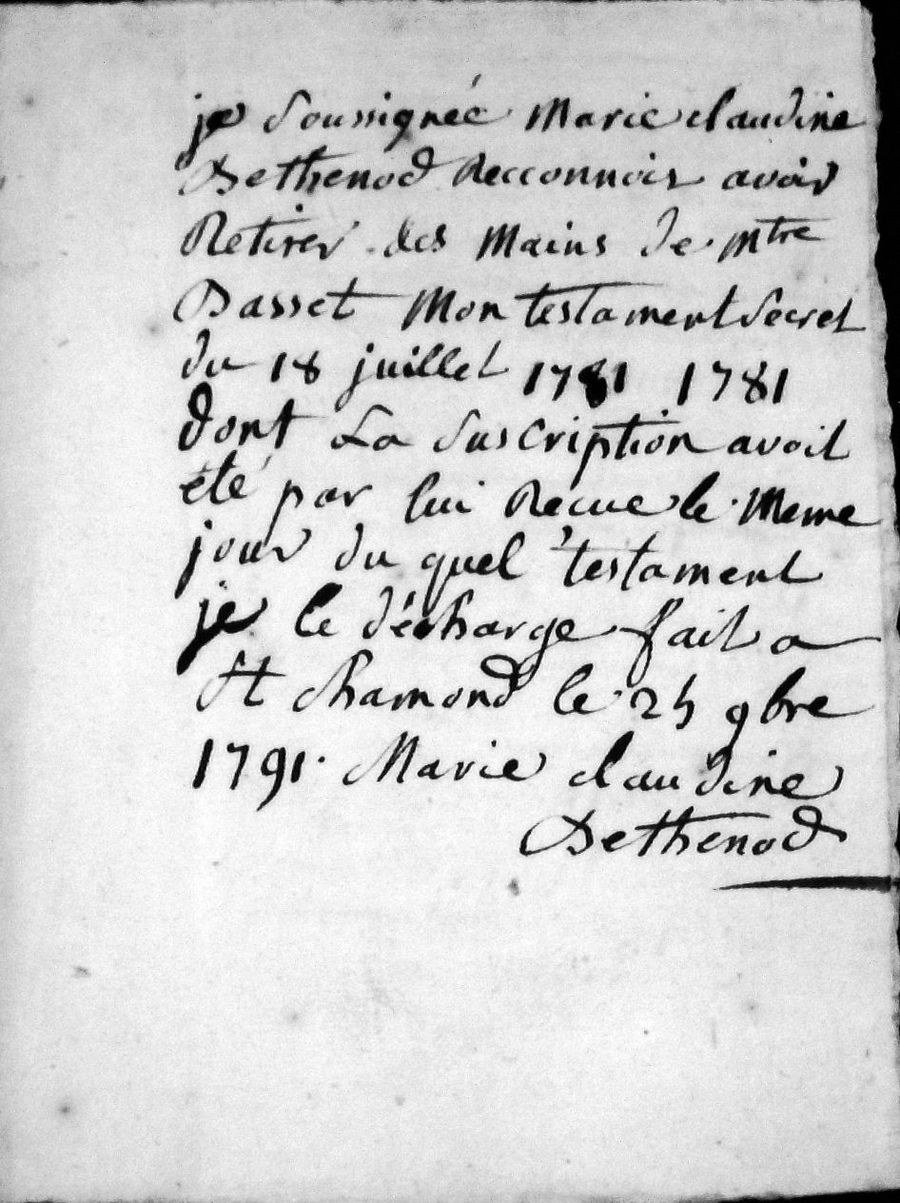 je soussignée Marie claudine
Dethenod Recconnois avoir
Retirer des Mains de Mtre
Basset Mon testament secret
du 18 juillet 1781 1781
dont La suscription avoit
été par lui Recue le Meme
jour du quel testament
je le décharge fait a
St chamond le 25 9bre
1791. Marie claudine
Dethenod